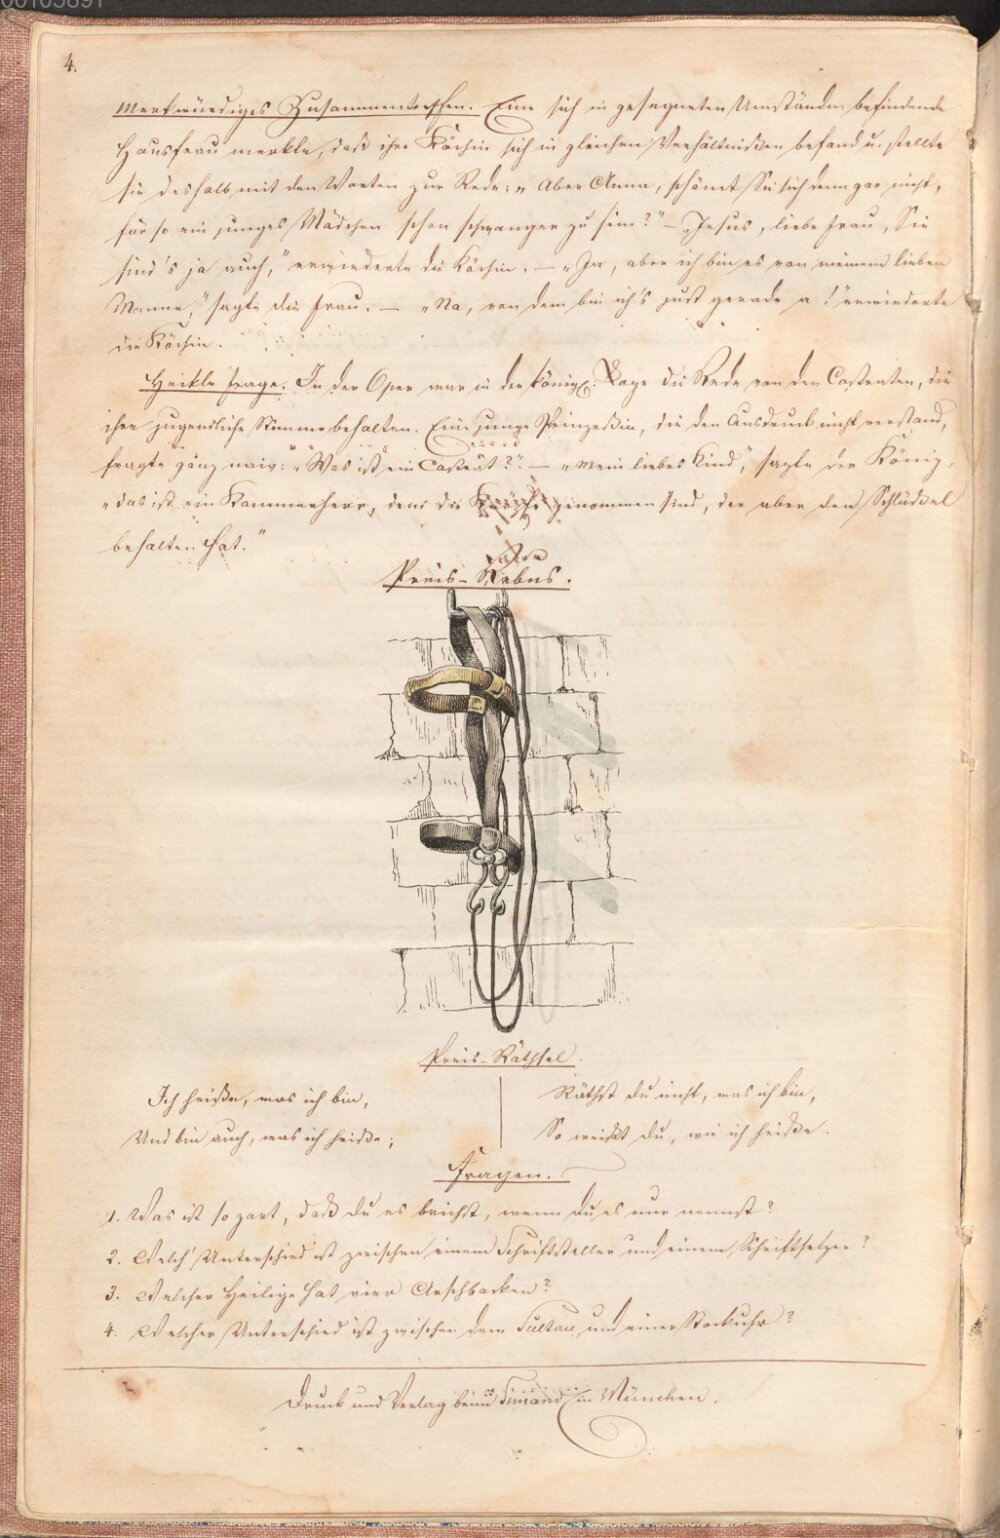 00105891
4.
Merkwürdiges Zusammentreffen. Eine sich in gesegneten Umständen befindende
Hausfrau merkte, daß ihre Köchin sich in gleichen Verhältnißen befand u. stellte
sie deshalb mit den Worten zur Rede: „Aber Anna, schämt Sie sich denn gar nicht,
für so ein junges Mädchen schon schwanger zu sein?" – „Jesus, liebe Frau, Sie
sind's ja auch," erwiederte die Köchin. – „Ja, aber ich bin es von meinem lieben
Manne," sagte die Frau. – „Na, von dem bin ich's just gerade a!" erwiederte
die Köchin.
Heikle Frage. In der Oper war in der königl. Loge die Rede von den Castraten, die
ihre jugendliche Stimme behalten. Eine junge Prinzeßin, die den Ausdruck nicht verstand,
fragte ganz naiv: „Was ist ein Castrat?" – „Mein liebes Kind," sagte der König,
„das ist ein Kammerherr, dem die Knöpfe genommen sind, der aber den Schlüßel
behalten hat."
Preis-Rebus.
Preis-Räthsel.
Ich heiße, was ich bin,
Und bin auch, was ich heiße;
Räthst du nicht, was ich bin,
So weißt du, wie ich heiße.
Fragen.
1. Was ist so zart, daß du es brichst, wenn du es nur nennst?
2. Welch' Unterschied ist zwischen einem Schriftsteller und einem Schriftsetzer?
3. Welcher Heilige hat vier Arschbacken?
4. Welcher Unterschied ist zwischen dem Sultan und einer Stockuhr?
Druck und Verlag beim in München.